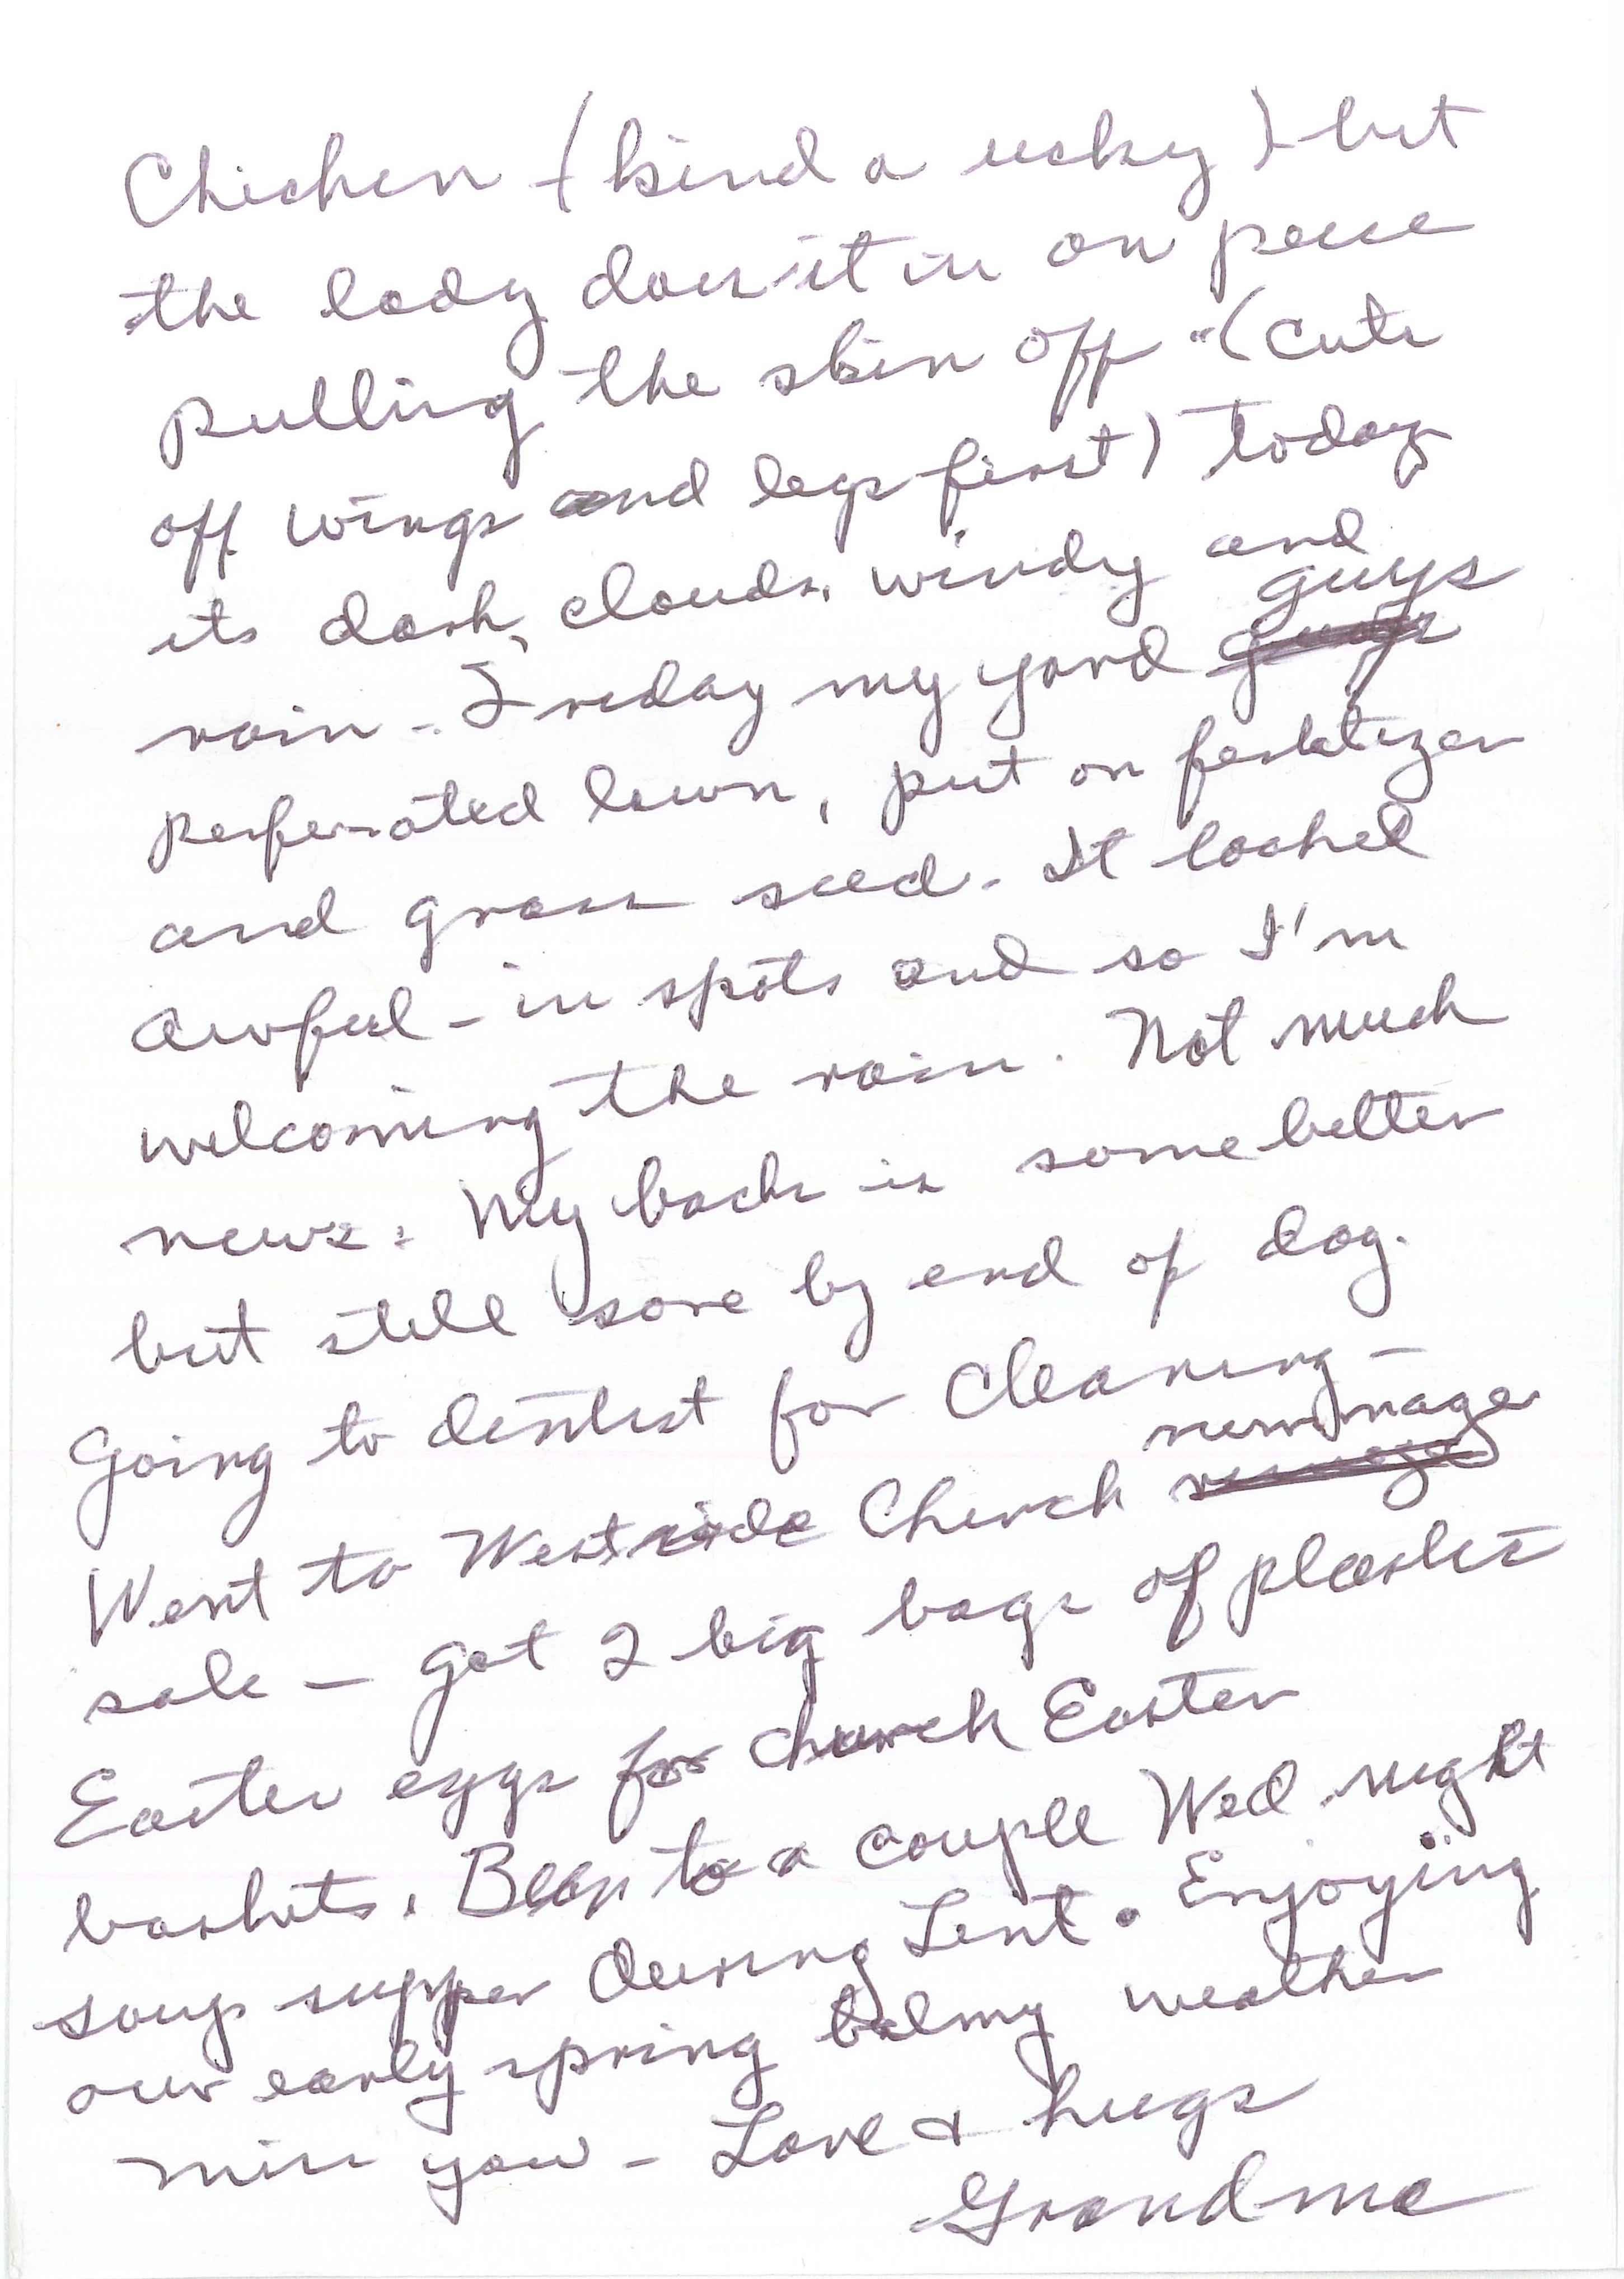 Chicken - (kind a ucky) - but
the lady does it in on peice
pulling the skin off - (cuts
off wings and legs first) Today
its dark, clouds, windy and
rain - Friday my yard guys
perferated lawn, put on fertilizer
and grass seed. It looked
awful - in spots and so I'm
welcoming the rain. Not much
news. My back is some better
but still sore by end of day.
Going to dentist for cleaning -
Went to Westside Church rummage
sale - got 2 big bags of plastic
Easter eggs for church Easter
baskets. Been to a couple Wed. night
soup supper during Lent. Enjoying
our early spring balmy weather
miss you - Love & hugs
Grandma